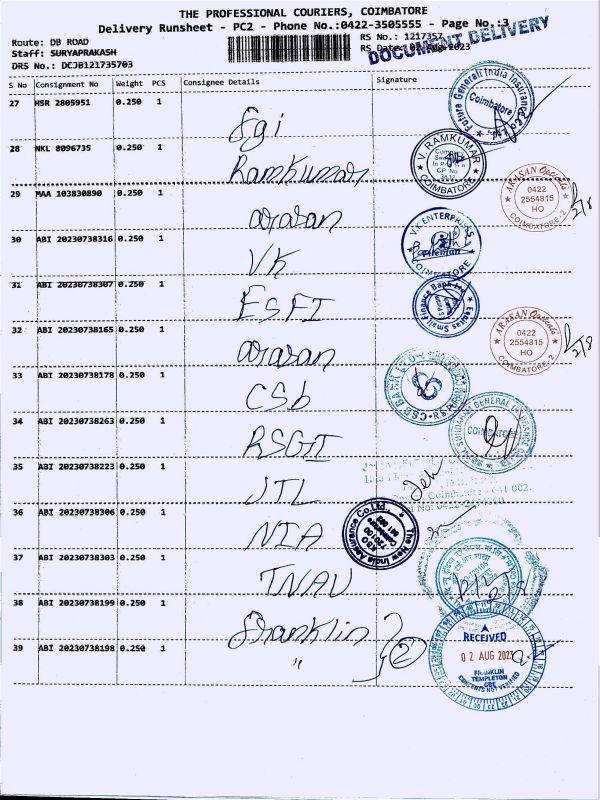 THE PROFESSIONAL COURIERS, COIMBATORE
Delivery Runsheet - PC2 - Phone No.:0422-3505555 - Page No.:3
Route: DB ROAD
RS No.: 1217357
Staff: SURYAPRAKASH
RS Date: 02 Aug 2023
DOCUMENT DELIVERY
DRS No.: DCJB121735703
S No Consignment No Weight PCS Consignee Details Signature
27 HSR 2805951 0.250 1
Sgi
Future Generali India Insurance Co.
Coimbatore
28 NKL 8096735 0.250 1
Ramkumar
V. RAMKUMAR
COIMBATORE
29 MAA 103830890 0.250 1
arasan
ARASAN Opticals
0422
2554815
HO
COIMBATORE-2
2/8
30 ABI 20230738316 0.250 1
VK
V.K ENTERPRISES
COIMBATORE
31 ABI 20230738307 0.250 1
ESFI
Equitas Small Finance Bank
32 ABI 20230738165 0.250 1
arasan
ARASAN Opticals
0422
2554815
HO
COIMBATORE-2
2/8
33 ABI 20230738178 0.250 1
CSb
CSB BANK LTD
34 ABI 20230738263 0.250 1
RSGI
SUNDARAM GENERAL INSURANCE
COIMBATORE
35 ABI 20230738223 0.250 1
JTL
Coimbatore - 641 002.
36 ABI 20230738306 0.250 1
NIA
The New India Assurance Co.Ltd.,
720100
Coimbatore
641 002
37 ABI 20230738303 0.250 1
TNAU
38 ABI 20230738199 0.250 1
Franklin
2
RECEIVED
02 AUG 2023
FRANKLIN
TEMPLETON
CBE
CONTENTS NOT VERIFIED
39 ABI 20230738198 0.250 1
"